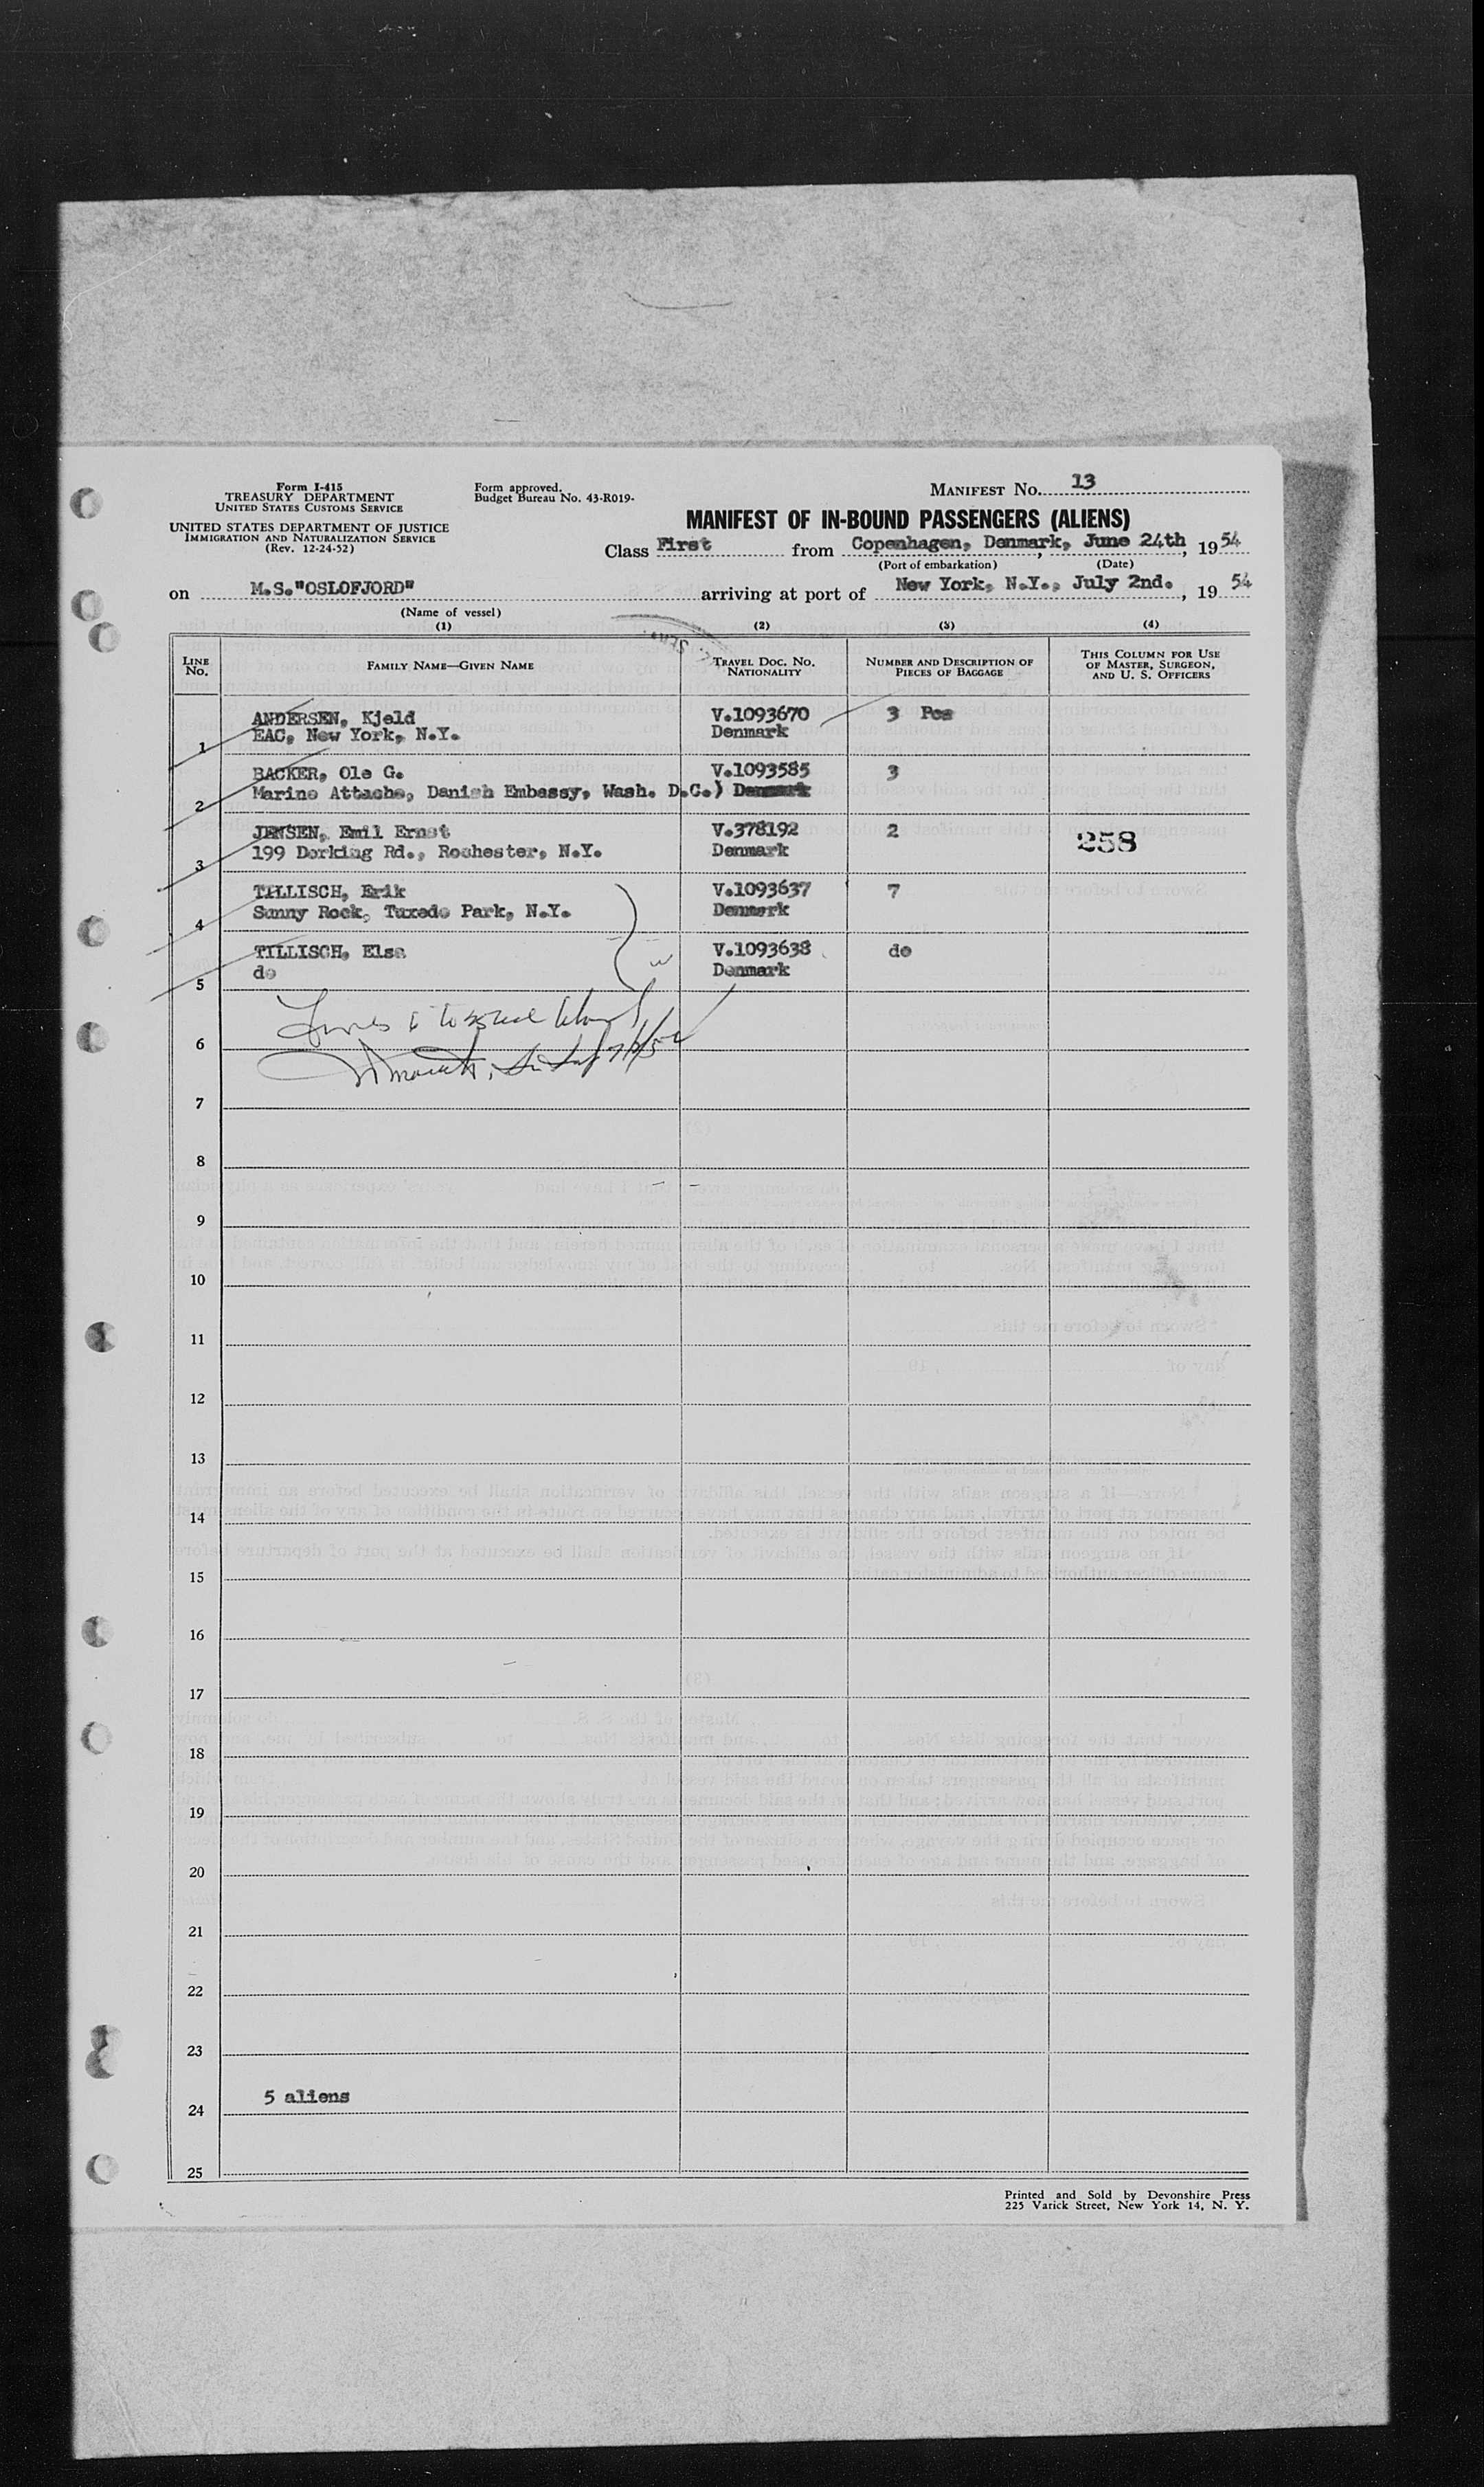 Form I-415
TREASURY DEPARTMENT
UNITED STATES CUSTOMS SERVICE
UNITED STATES DEPARTMENT OF JUSTICE
IMMIGRATION AND NATURALIZATION SERVICE
(Rev. 12-24-52)
Form approved.
Budget Bureau No. 43-R019-
MANIFEST NO. 13
MANIFEST OF IN-BOUND PASSENGERS (ALIENS)
Class First from Copenhagen, Denmark, June 24th, 1954
(Port of embarkation) (Date)
on M.S."OSLOFJORD" arriving at port of New York, N.Y., July 2nd., 1954
(Name of vessel)
(1) (2) (3) (4)
LINE NO. FAMILY NAME—GIVEN NAME TRAVEL DOC. NO. NATIONALITY NUMBER AND DESCRIPTION OF PIECES OF BAGGAGE THIS COLUMN FOR USE OF MASTER, SURGEON, AND U. S. OFFICERS
ANDERSEN, Kjeld V.1093670 3 Pcs
1 EAC, New York, N.Y. Denmark
BACKER, Ole G. V.1093585 3
2 Marine Attache, Danish Embassy, Wash. D.C.) Denmark
JENSEN, Emil Ernst V.378192 2 258
3 199 Dorking Rd., Rochester, N.Y. Denmark
TILLISCH, Erik V.1093637 7
4 Sunny Rock, Tuxedo Park, N.Y. Denmark
TILLISCH, Elsa V.1093638 do
5 do Denmark
6
7
8
9
10
11
12
13
14
15
16
17
18
19
20
21
22
23
5 aliens
24
25
Printed and Sold by Devonshire Press
225 Varick Street, New York 14, N. Y.